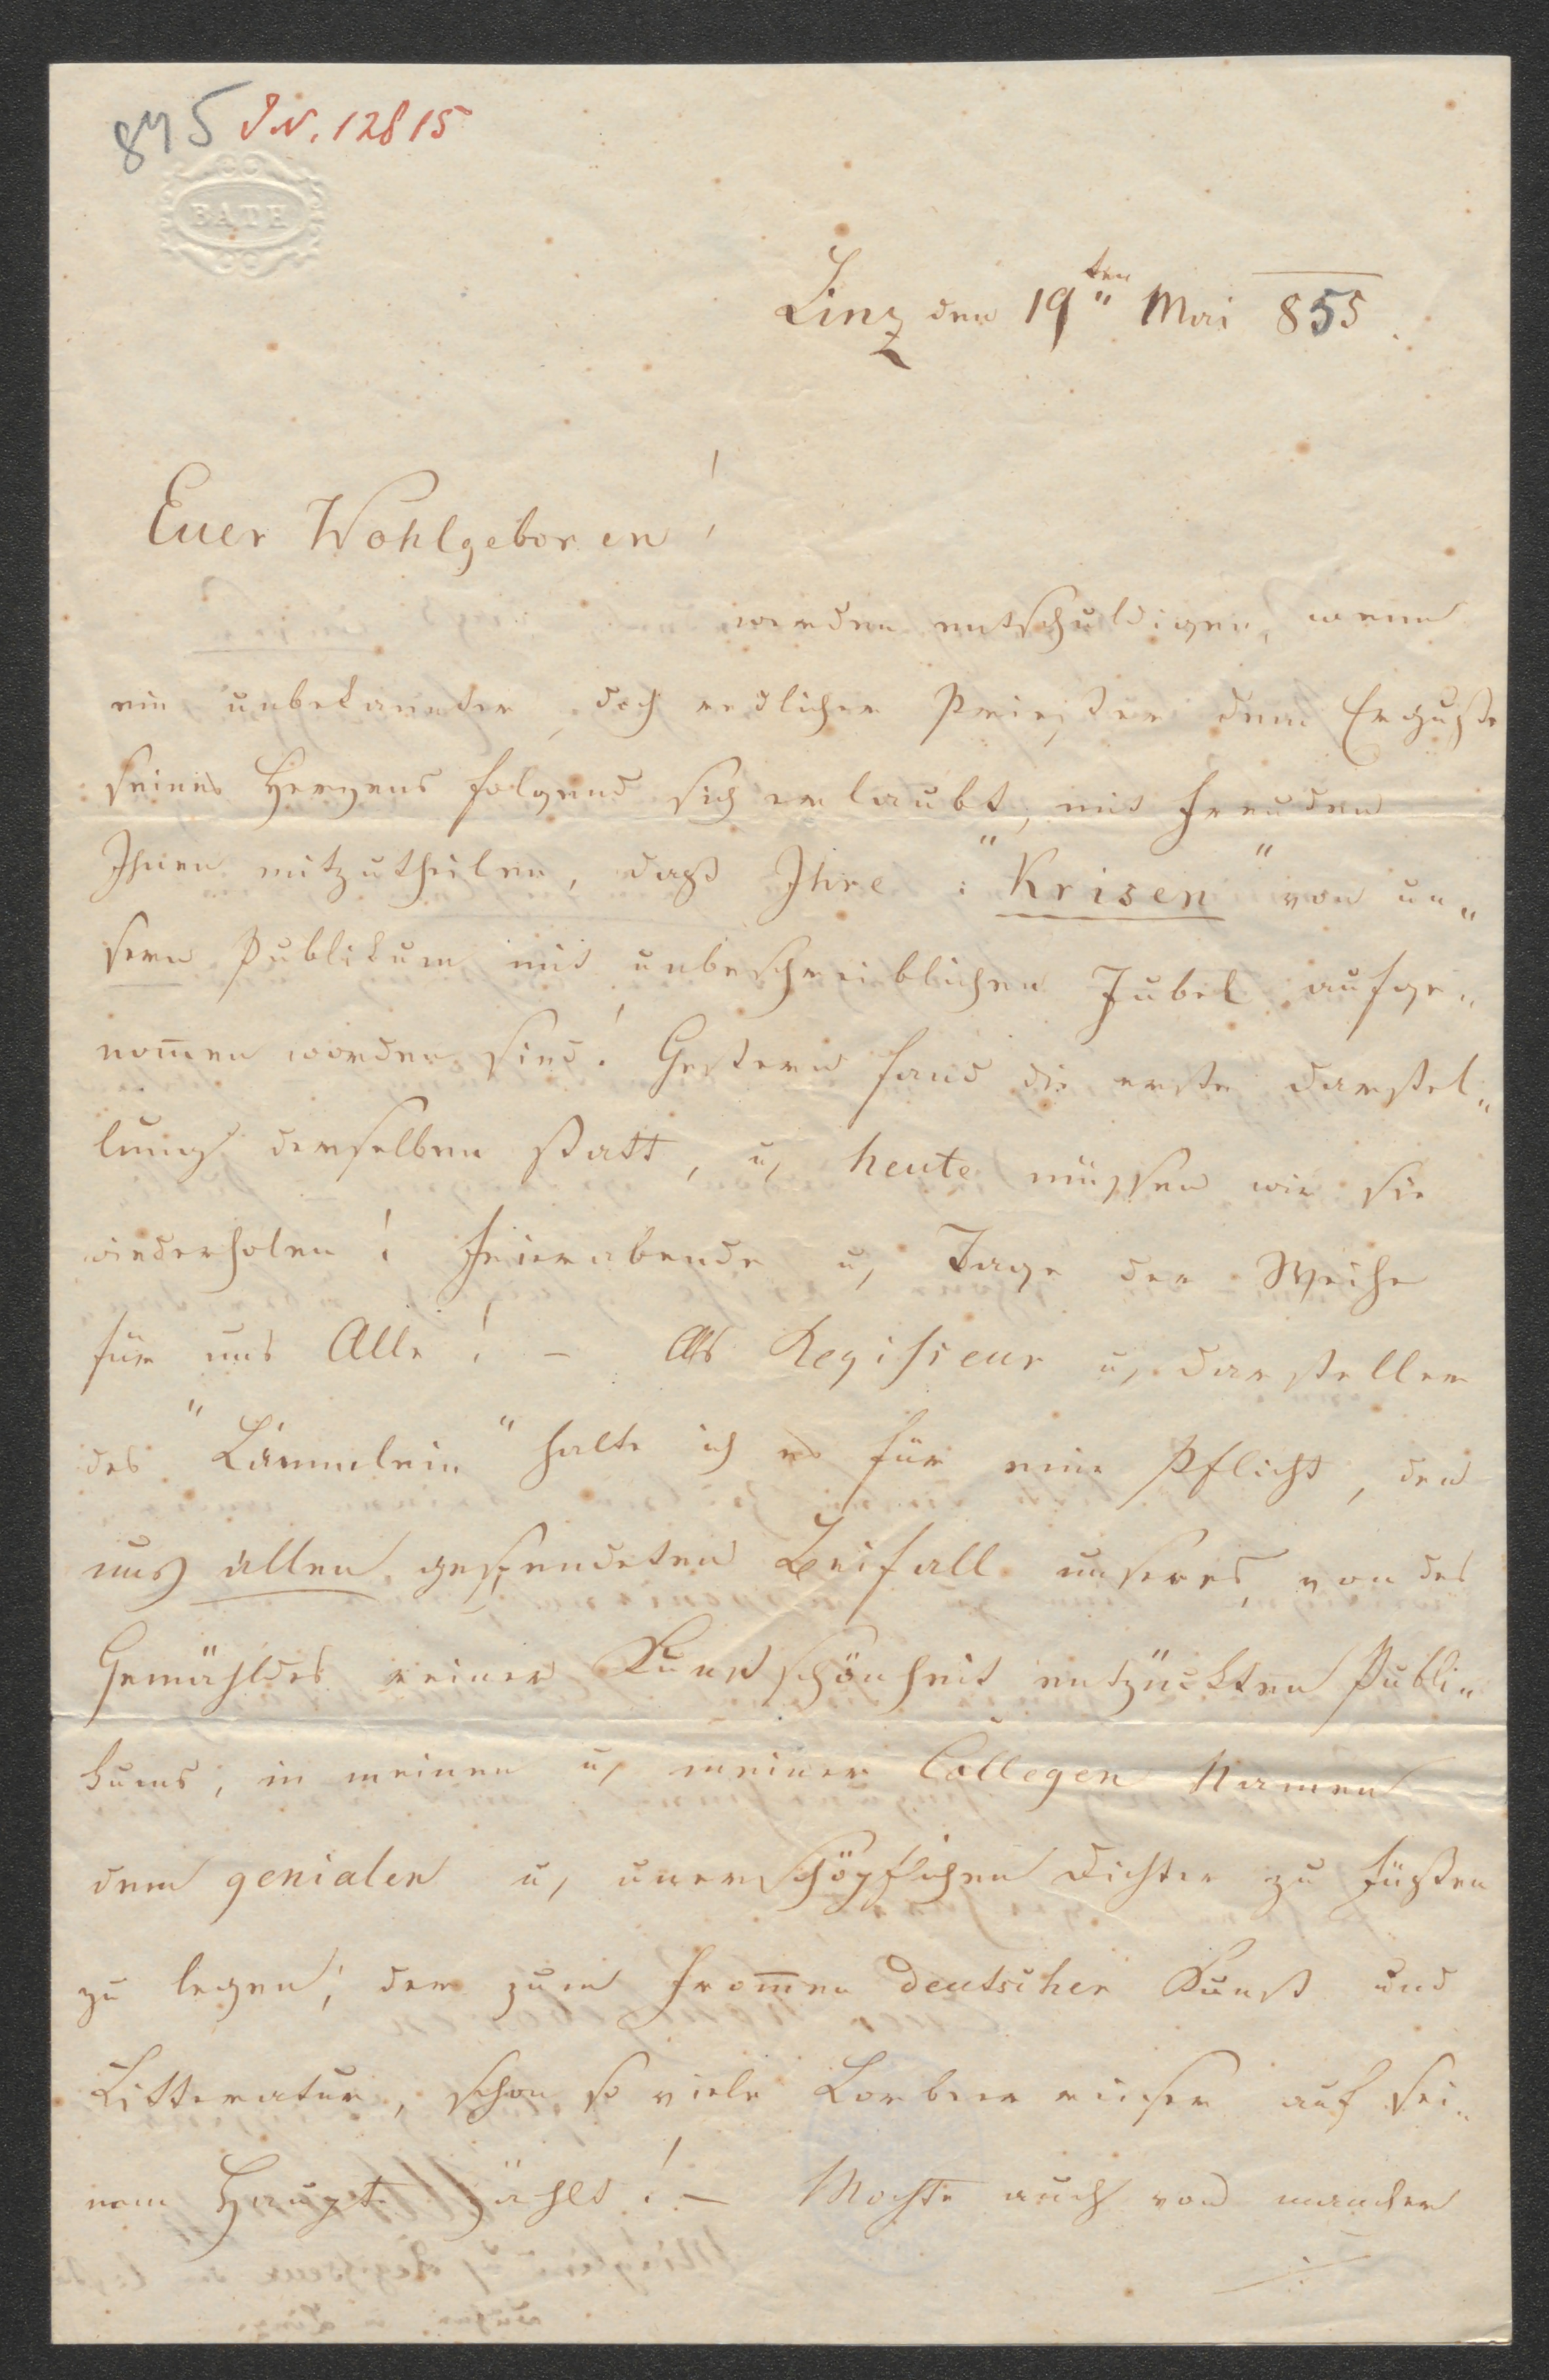 845 I.N. 12815
BATH
Linz den 19ten Mai 855.
Euer Wohlgeboren!
werden entschuldigen, wenn
ein unbekannter, doch redlicher Priester dem Erguße
seines Herzens folgend sich erlaubt, mit Freuden
Ihnen mitzutheilen, daß Ihre: "Krisen" von un„
sern Publikum mit unbeschreiblichen Jubel aufge„
nom̅en worden sind! Gestern fand die erste Darstel„
lung derselben statt, u, heute müssen wir sie
wiederholen! Feierabende u, Tage der Weihe
für uns Alle! – Als Regisseur u, Darsteller
des "Lämmlein" halte ich es für eine Pflicht, den
uns allen gespendeten Beifall unseres, von des
Gemähldes reiner Kunstschönheit entzückten Publi„
kums, in meinen u, meiner Collegen Namen
dem genialen u, unerschöpflichen Dichter zu Füßen
zu legen, der zum From̅en deutscher Kunst und
Litteratur, schon so viele Lorbeerreiser auf sei„
nem Haupt zählt! – Mochte auch von mancher